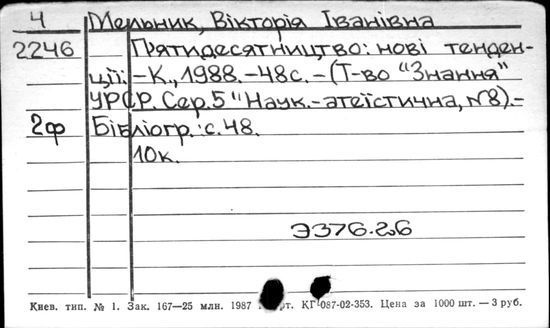 4 Мельник, Вікторія Іванівна
2246 П'ятидесятництво: нові тенден-
ції. – К., 1988. – 48 с. – (Т-во "Знання"
УРСР. Сер. 5 "Наук.-атеїстична, №8). –
2ф Бібліогр.: с. 48.
10к.
Э376.26
Киев. тип. № 1. Зак. 167—25 млн. 1987 КГ-087-02-353. Цена за 1000 шт. — 3 руб.